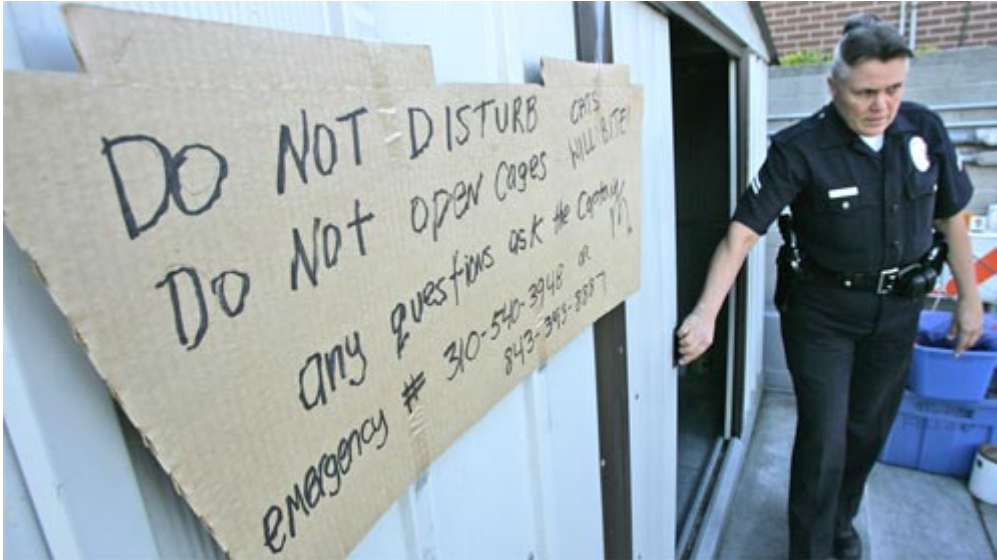 DO NOT DISTURB CATS
DO NOT OPEN CAGES WILL BITE
any questions ask the Captain
emergency # 310-540-3948 or
843-393-8887